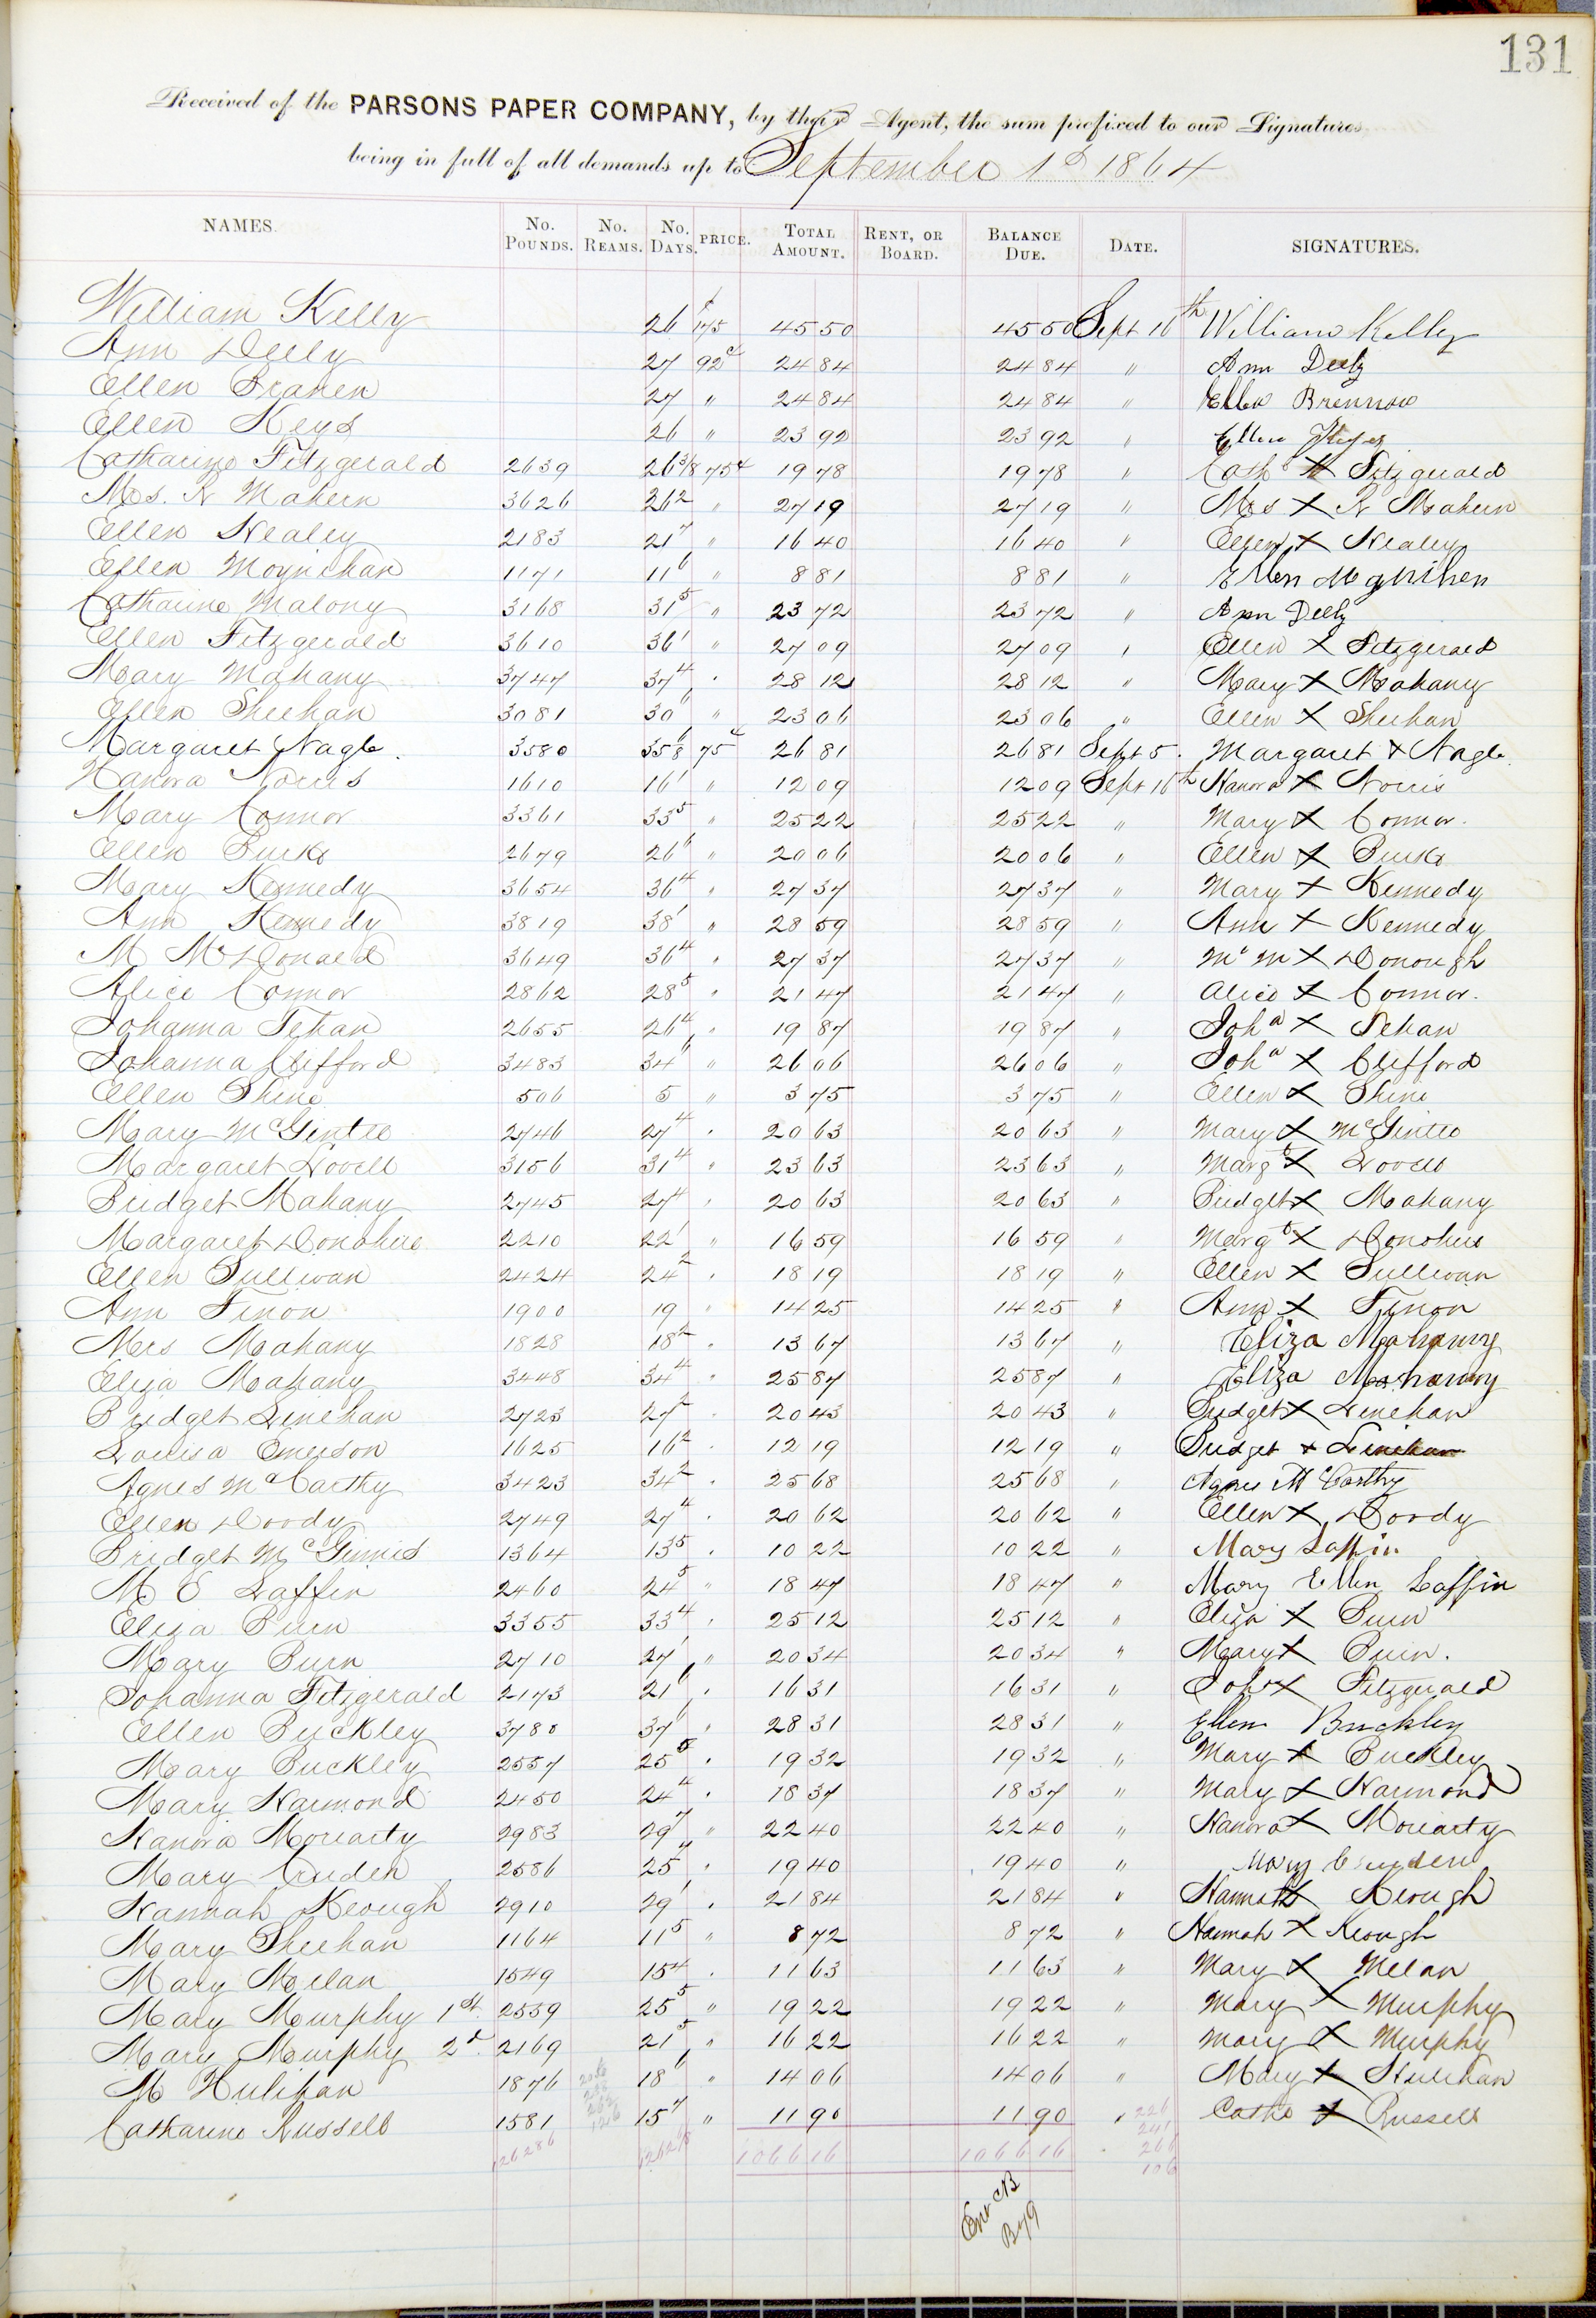 131
Received of the PARSONS PAPER COMPANY, by their Agent, the sum prefixed to our Signatures
being in full of all demands up to September 1st 1864
NAMES. No. POUNDS. No. REAMS. No. DAYS. PRICE. TOTAL AMOUNT. RENT, OR BOARD. BALANCE DUE. DATE. SIGNATURES.
William Kelly 26 $1 75 45 50 45 50 Sept 16th William Kelly
Ann Deely 27 92c 24 84 24 84 " Ann Deely
Ellen Branen 27 " 24 84 24 84 " Ellen Brennow
Ellen Keys 26 " 23 92 23 92 " Ellen Keyes
Catharine Fitzgerald 2639 26 3/8 75c 19 78 19 78 " Cath X Fitzgerald
Mrs. N Mahern 3626 36 2 " 27 19 27 19 " Mrs X N Mahern
Ellen Healey 2183 21 7 " 16 40 16 40 " Ellen X Healey
Ellen Moynihan 1171 11 6 " 8 81 8 81 " Ellen Moynihen
Catharine Malony 3168 31 5 " 23 72 23 72 " Ann Deely
Ellen Fitzgerald 3610 36 1 " 27 09 27 09 " Ellen X Fitzgerald
Mary Mahany 3747 37 4 " 28 12 28 12 " Mary X Mahany
Ellen Sheehan 3081 30 6 " 23 06 23 06 " Ellen X Sheehan
Margaret Nagle 3580 35 6/8 75c 26 81 26 81 Sept 5. Margaret X Nagle
Hanora Norris 1610 16 1 " 12 09 12 09 Sept 16th Hanora X Norris
Mary Connor 3361 33 5 " 25 22 25 22 " Mary X Connor.
Ellen Burke 2679 26 6 " 20 06 20 06 " Ellen X Burke
Mary Kennedy 3654 36 4 " 27 37 27 37 " Mary X Kennedy
Ann Kennedy 3819 38 1 " 28 59 28 59 " Ann X Kennedy
M McDonald 3649 36 4 " 27 37 27 37 " Mc M X Donough
Alice Connor 2862 28 5 " 21 47 21 47 " Alice X Connor.
Johanna Tehan 2655 26 4 " 19 87 19 87 " Joha X Tehan
Johanna Clifford 3483 34 6 " 26 06 26 06 " Joha X Clifford
Ellen Shine 506 5 " 3 75 3 75 " Ellen X Shine
Mary McGintee 2746 27 4 " 20 63 20 63 " Mary X McGintee
Margaret Lovell 3156 31 4 " 23 63 23 63 " Margt X Lovell
Bridget Mahany 2745 27 4 " 20 63 20 63 " Bridget X Mahany
Margaret Donohue 2210 22 1 " 16 59 16 59 " Margt X Donohue
Ellen Sullivan 2424 24 2 " 18 19 18 19 " Ellen X Sullivan
Ann Finon 1900 19 " 14 25 14 25 " Ann X Finon
Mrs Mahany 1828 18 2 " 13 67 13 67 " Eliza Mahanny
Eliza Mahany 3448 34 4 " 25 87 25 87 " Eliza Mahanny
Bridget Linehan 2723 27 2 " 20 43 20 43 " Bridget X Linehan
Louisa Emerson 1625 16 2 " 12 19 12 19 " Bridget X Linehan
Agnes McCarthy 3423 34 2 " 25 68 25 68 " Agnes McCarthy
Ellen Doody 2749 27 4 " 20 62 20 62 " Ellen X Doody
Bridget McGinnis 1364 13 5 " 10 22 10 22 " Mary Laffin
M E Laffin 2460 24 5 " 18 47 18 47 " Mary Ellen Laffin
Eliza Burn 3355 33 4 " 25 12 25 12 " Eliza X Burn
Mary Burn 2710 27 1 " 20 34 20 34 " Mary X Burn.
Johanna Fitzgerald 2173 21 6 " 16 31 16 31 " Joha X Fitzgerald
Ellen Buckley 3780 37 6 " 28 31 28 31 " Ellen Buckley
Mary Buckley 2557 25 6 " 19 32 19 32 " Mary X Buckley
Mary Harmond 2450 24 4 " 18 37 18 37 " Mary X Harmond
Hanora Moriarty 2983 29 7 " 22 40 22 40 " Hanora X Moriarty
Mary Cruden 2586 25 7 " 19 40 19 40 " Mary Cruden
Hannah Keough 2910 29 1 " 21 84 21 84 " Hannah X Keough
Mary Sheehan 1164 11 5 " 8 72 8 72 " Hannah X Keough
Mary Melan 1549 15 4 " 11 63 11 63 " Mary X Melan
Mary Murphy 1st 2559 25 5 " 19 22 19 22 " Mary X Murphy
Mary Murphy 2d 2169 21 5 " 16 22 16 22 " Mary X Murphy
M Hulihan 1876 18 6 " 14 06 14 06 " Mary X Hulihan
Catharine Russell 1581 15 7 " 11 90 11 90 " Cath X Russell
1066 16 1066 16